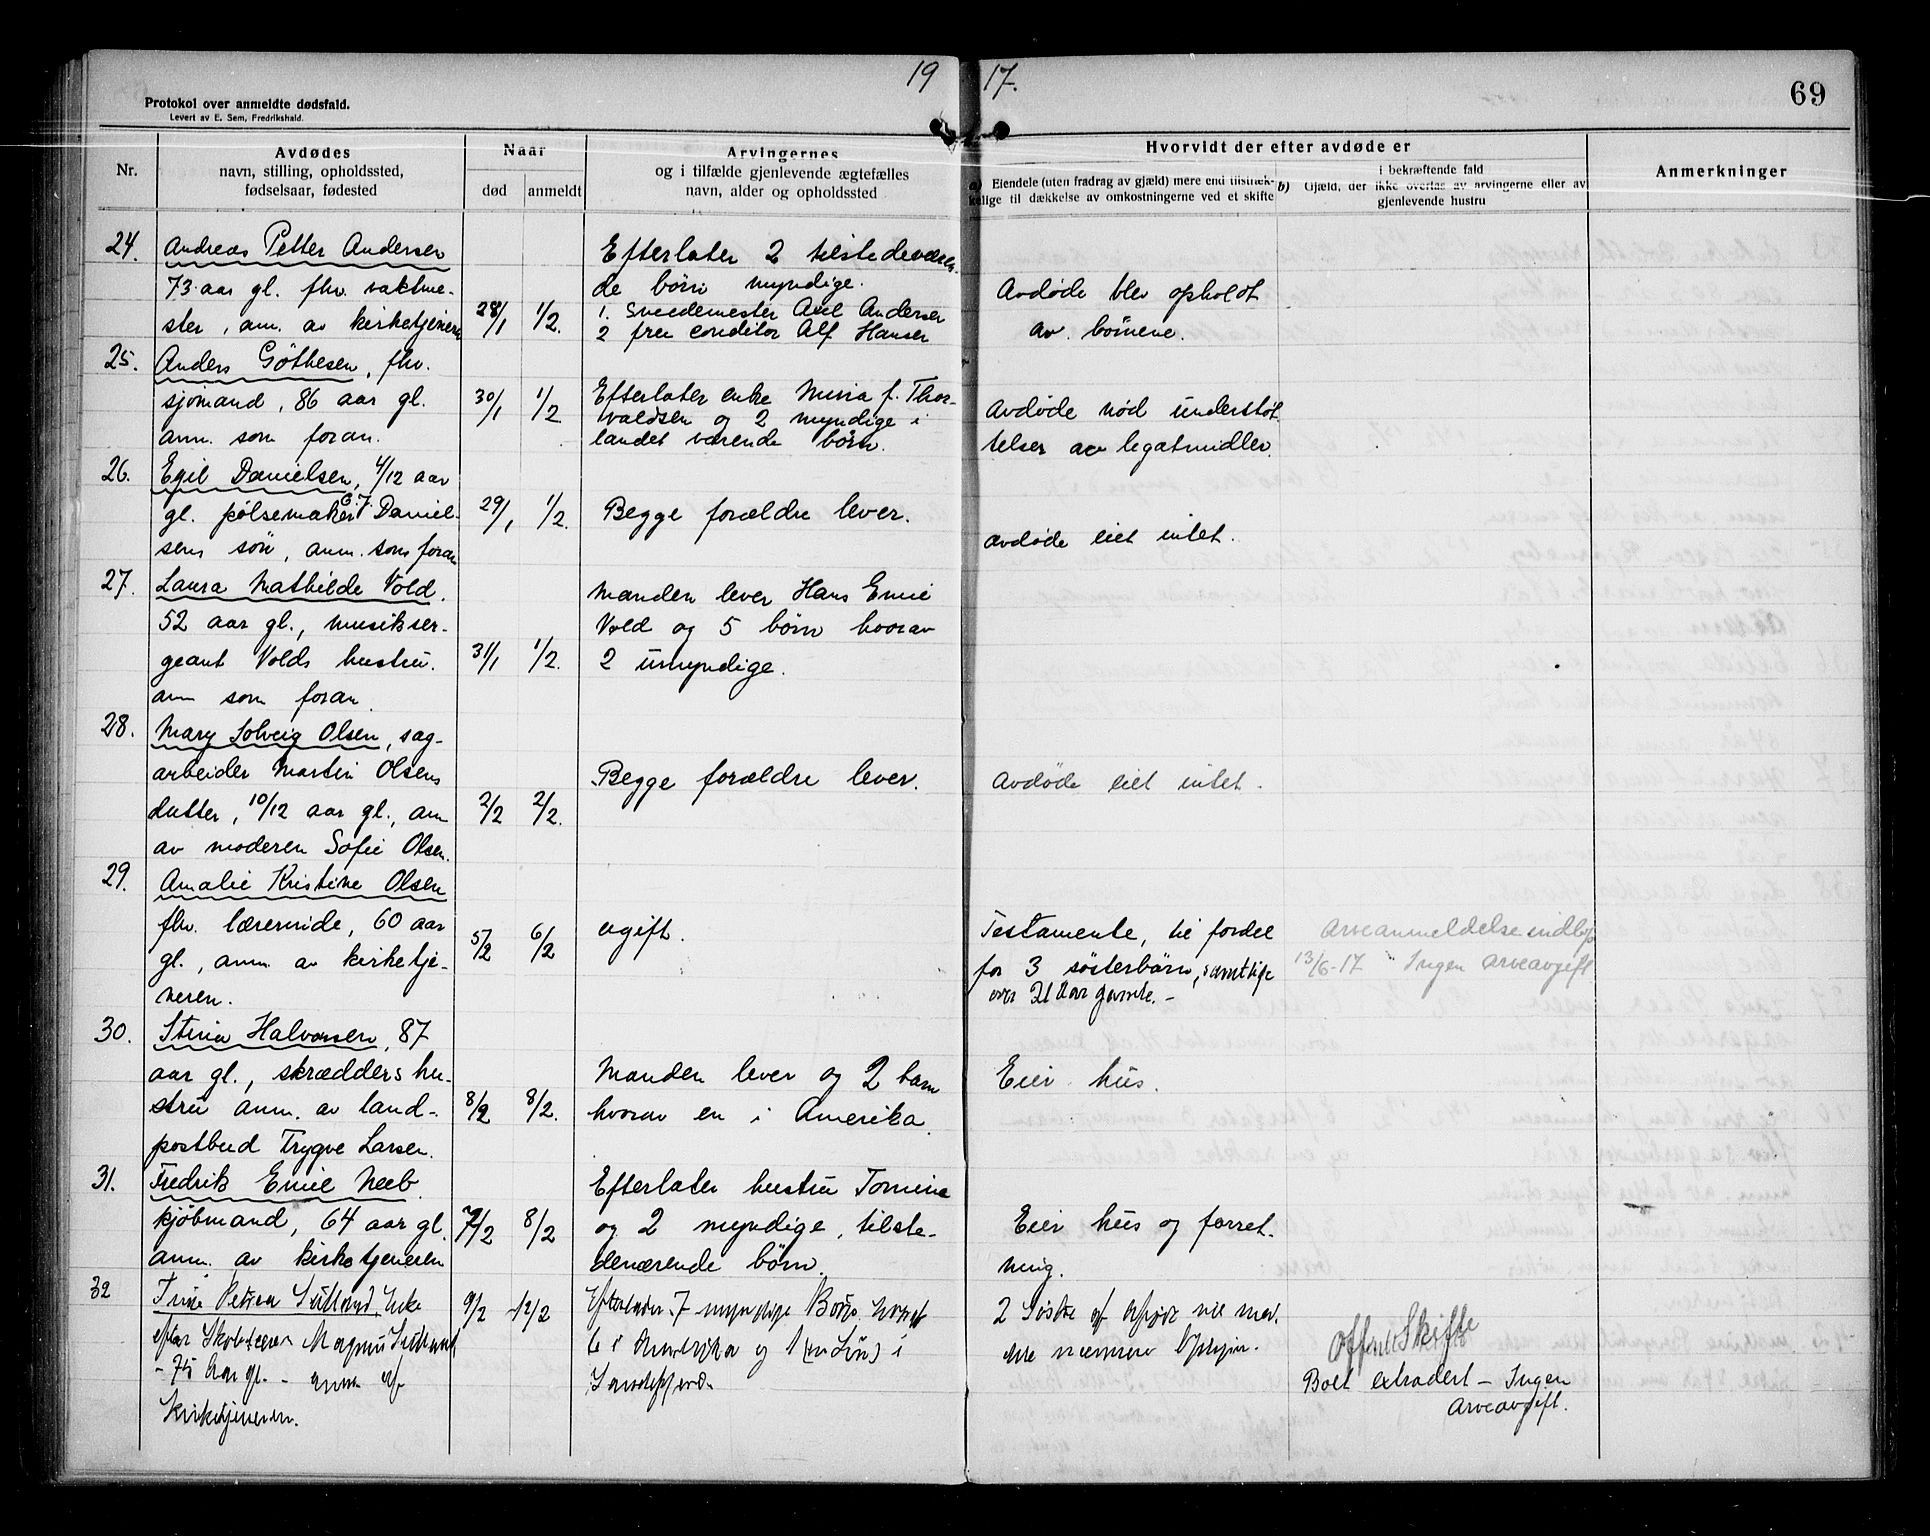 19 17.
69
Protokol over anmeldte dødsfald.
Levert av E. Sem, Fredrikshald.
Nr.
Avdødes
navn, stilling, opholdssted,
fødselsaar, fødested
Naar
død anmeldt
Arvingernes
og i tilfælde gjenlevende ægtefælles
navn, alder og opholdssted
Hvorvidt der efter avdøde er
a) Eiendele (uten fradrag av gjæld) mere end tilstræk-
kelige til dækkelse av omkostningerne ved et skifte
i bekræftende fald
b) Gjæld, der ikke overtas av arvingerne eller av
gjenlevende hustru
Anmerkninger
24. Andreas Petter Andersen
73 aar gl. fhv. vaktme-
ster, anm. av kirketjeneren
28/1 1/2.
Efterlater 2 tilstedeværen-
de børn myndige.
1. Smedemester Axel Andersen
2 frue conditor Alf Hansen
Avdøde blev opholdt
av børnene.
25. Anders Göthesen, fhv.
sjømand, 86 aar gl.
anm. som foran.
30/1 1/2
Efterlater enke Mina f. Thor-
valdsen og 2 myndige i
landet værende børn.
Avdøde nød understøt-
telser av legatmidler.
26. Egil Danielsen, 4/12 aar
gl. pølsemaker Daniel-
sens søn, anm. som foran
29/1 1/2.
Begge forældre lever.
avdøde eiet intet.
27. Laura Mathilde Vold.
52 aar gl., musikser-
geant Volds hustru.
anm som foran.
31/1 1/2.
Manden lever Hans Emil
Vold og 5 børn hvorav
2 umyndige.
28. Mary Solveig Olsen, sag-
arbeider Martin Olsens
datter, 10/12 aar gl., anm
av moderen Sofie Olsen.
2/2 2/2.
Begge forældre lever.
Avdøde eiet intet.
29. Amalie Kristine Olsen
fhv. lærerinde, 60 aar
gl., anm. av kirketje-
neren.
5/2 6/2
ugift.
Testamente, til fordel
for 3 søsterbørn, samtlige
over 21 aar gamle. -
Arveanmeldelse indlev
13/6-17 Ingen arveavgift
30. Stina Halvorsen, 87
aar gl., skrædders hu-
stru anm. av land-
postbud Trygve Larsen.
8/2 8/2.
Manden lever og 2 barn
hvorav en i Amerika.
Eier hus.
31. Fredrik Emil Neeb.
kjøbmand, 64 aar gl.
anm. av kirketjeneren
7/2 8/2
Efterlater hustru Tomine
og 2 myndige, tilste-
deværende børn.
Eier hus og forret-
ning.
32 Trine Petrea Enke
efter Magnus
- 75 Aar gl. - anm. af
Kirketjeneren.
9/2 12/2
Efterlader 7 myndige Børn, hvoraf
6 i Amerika og 1 (en Søn) i
2 Søstre af Afdøde vil med-
dele nærmere Oplysn.
Offentl Skifte
Boet extradert - Ingen
Arveavgift.